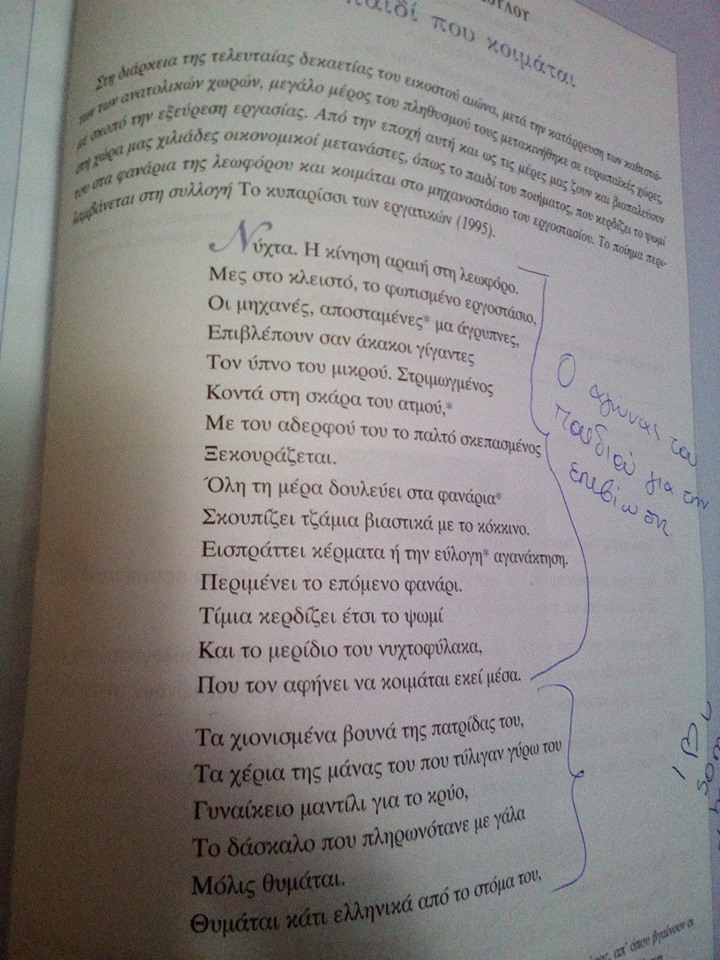 παιδί που κοιμάται
Στη διάρκεια της τελευταίας δεκαετίας του εικοστού αιώνα, μετά την κατάρρευση των καθεστώ-
των των ανατολικών χωρών, μεγάλο μέρος του πληθυσμού τους μετακινήθηκε σε ευρωπαϊκές χώρες,
με σκοπό την εξεύρεση εργασίας. Από την εποχή αυτή και ως τις μέρες μας ζουν και βιοπαλεύουν
στη χώρα μας χιλιάδες οικονομικοί μετανάστες, όπως το παιδί του ποιήματος, που κερδίζει το ψωμί
του στα φανάρια της λεωφόρου και κοιμάται στο μηχανοστάσιο του εργοστασίου. Το ποίημα περι-
λαμβάνεται στη συλλογή Το κυπαρίσσι των εργατικών (1995).
Νύχτα. Η κίνηση αραιή στη λεωφόρο.
Μες στο κλειστό, το φωτισμένο εργοστάσιο,
Οι μηχανές, αποσταμένες* μα άγρυπνες,
Επιβλέπουν σαν άκακοι γίγαντες
Τον ύπνο του μικρού. Στριμωγμένος
Κοντά στη σκάρα του ατμού,*
Με του αδερφού του το παλτό σκεπασμένος
Ξεκουράζεται.
Όλη τη μέρα δουλεύει στα φανάρια*
Σκουπίζει τζάμια βιαστικά με το κόκκινο.
Εισπράττει κέρματα ή την εύλογη* αγανάκτηση.
Περιμένει το επόμενο φανάρι.
Τίμια κερδίζει έτσι το ψωμί
Και το μερίδιο του νυχτοφύλακα,
Που τον αφήνει να κοιμάται εκεί μέσα.
Ο αγώνας του
παιδιού για την
επιβίωση.
Τα χιονισμένα βουνά της πατρίδας του,
Τα χέρια της μάνας του που τύλιγαν γύρω του
Γυναίκειο μαντίλι για το κρύο,
Το δάσκαλο που πληρωνότανε με γάλα
Μόλις θυμάται.
Θυμάται κάτι ελληνικά από το στόμα του,
απ' όπου βγαίνουν οι